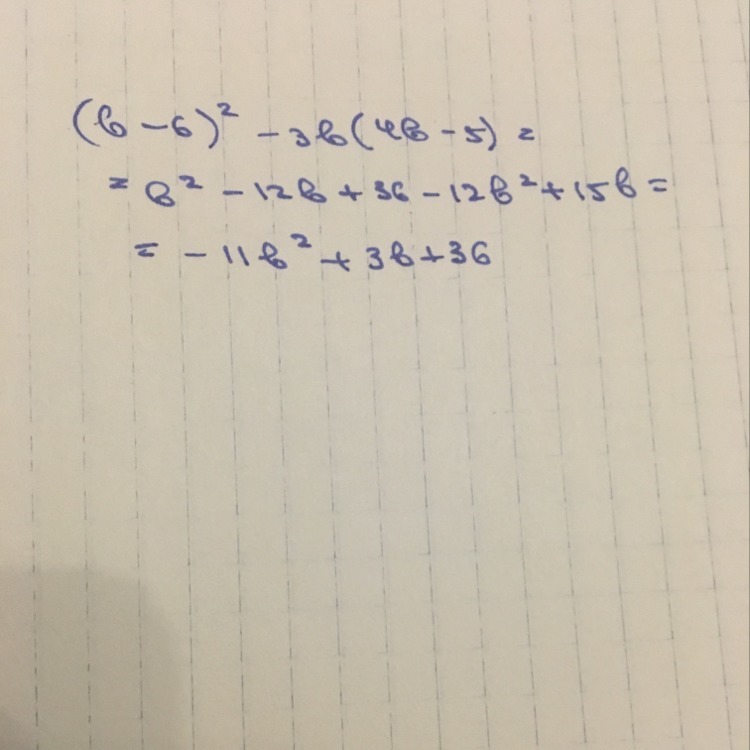 (b - 6)² - 3b(4b - 5) =
= b² - 12b + 36 - 12b² + 15b =
= - 11b² + 3b + 36